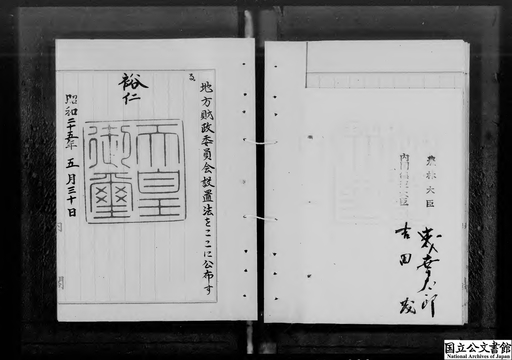 地方財政委員会設置法をここに公布す
裕仁
天皇御璽
昭和二十五年五月三十日
農林大臣
内閣総理大臣
吉田茂
国立公文書館
National Archives of Japan